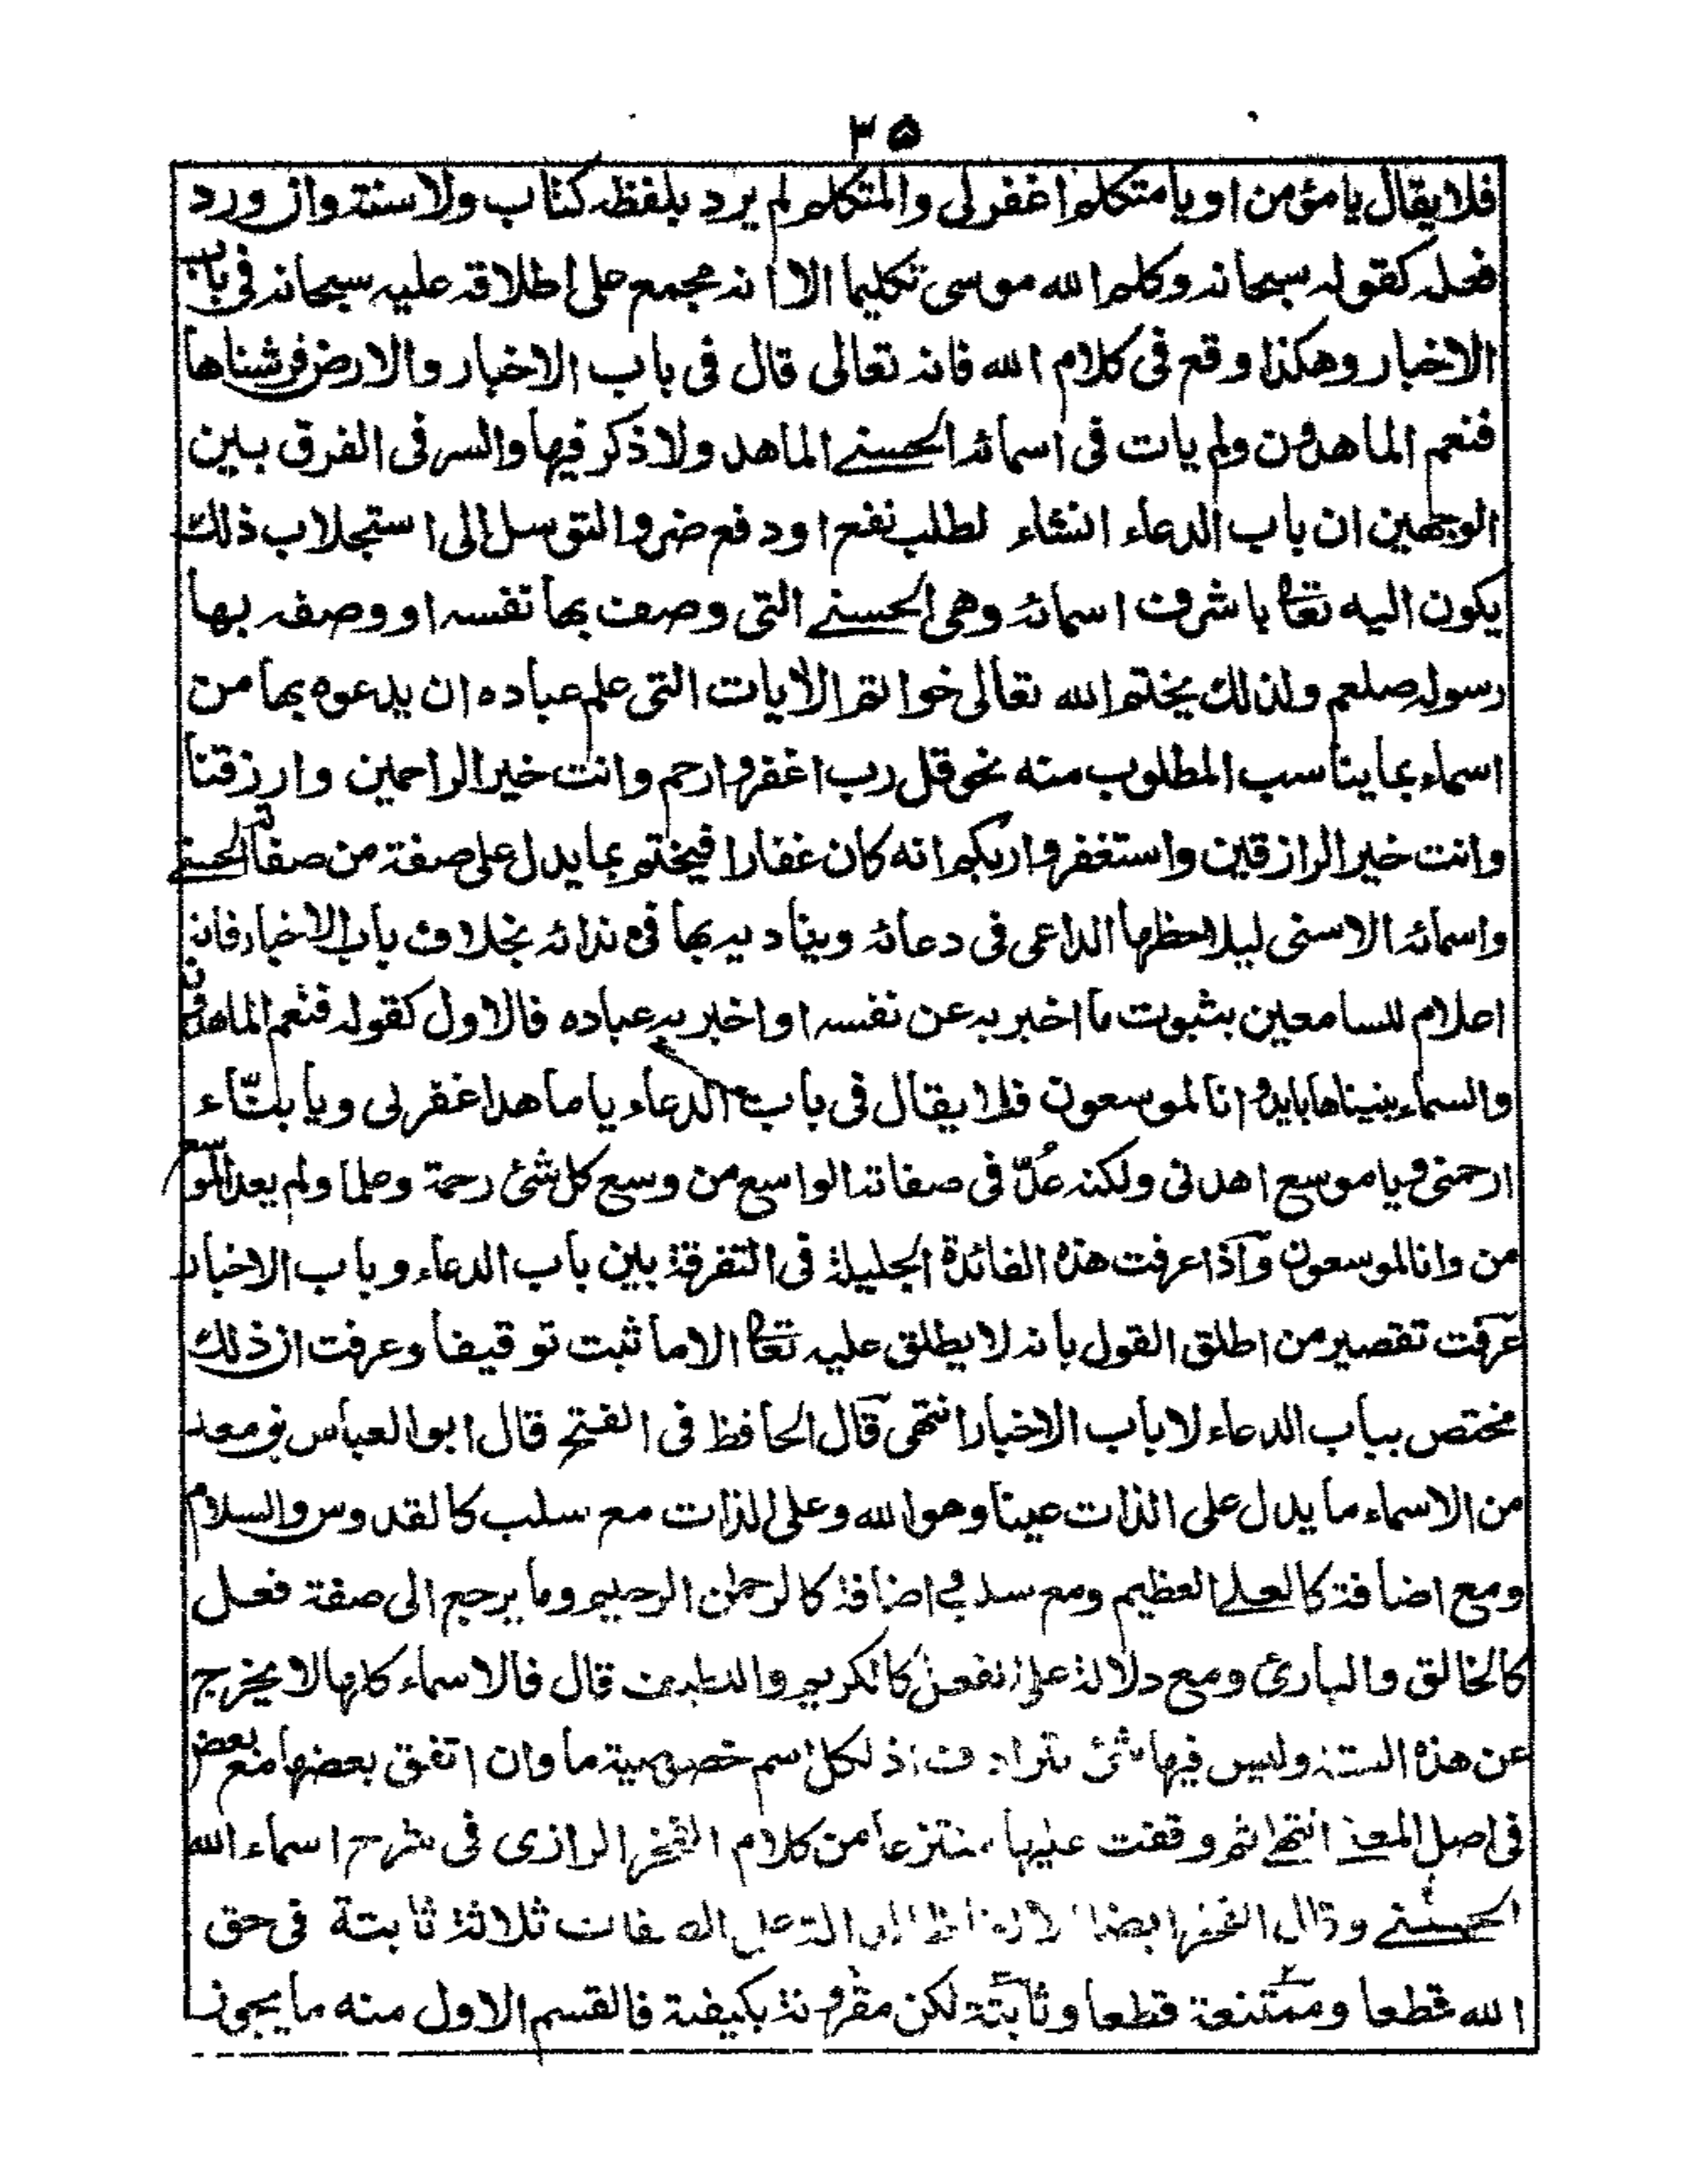 ٣٥
فلا يقال يا مؤمن او يا متكلم اغفر لى والمتكلم لم يرد بلفظه كتاب ولا سنة وان ورد
فعله كقوله سبحانه وكلم الله موسى تكليما الا انه مجمع على اطلاقه عليه سبحانه فى باب
الاخبار وهكذا وقع فى كلام الله فانه تعالى قال فى باب الاخبار والارض فرشناها
فنعم الماهدون ولم يات فى اسمائه الحسنے الماهد ولا ذكر فيها والسر فى الفرق بين
الوجهين ان باب الدعاء انشاء لطلب نفع او دفع ضر والتوسل الى استجلاب ذلك
يكون اليه تعا باشرف اسمائه وهى الحسنے التى وصف بها نفسه او وصفه بها
رسوله صلعم ولذلك يختم الله تعالى خواتم الايات التى علم عباده ان يدعوه بها من
اسماء بما يناسب المطلوب منه نحو قل رب اغفر وارحم وانت خير الراحمين وارزقنا
وانت خير الرازقين واستغفروا ربكم انه كان غفارا فيختم بما يدل على صفة من صفاته الحسنے
واسمائه الاسنى ليلاحظها الداعى فى دعائه ويناديه بها فى ندائه بخلاف باب الاخبار فانه
اعلام للسامعين بثبوت ما اخبر به عن نفسه او اخبر به عباده فالاول كقوله فنعم الماهدون
والسماء بنيناها بايد وانا لموسعون فلا يقال فى باب الدعاء يا ماهد اغفر لى ويا بنّاء
ارحمنى ويا موسع اهدنى ولكنه عُدّ فى صفاتنا الواسع من وسع كل شئ رحمة وعلما ولم يعد الموسع
من وانا لموسعون وآذا عرفت هذه الفائدة الجليلة فى التفرقة بين باب الدعاء وباب الاخبار
عرفت تقصير من اطلق القول بانه لا يطلق عليه تعا الا ما ثبت توقيفا وعرفت ان ذلك
مختص بباب الدعاء لا باب الاخبار انتهى قال الحافظ فى الفتح قال ابو العباس بن معد
من الاسماء ما يدل على الذات عينا وهو الله وعلى الذات مع سلب كالقدوس والسلام
ومع اضافة كالعلے العظيم ومع سلب واضافة كالرحمن الرحيم وما يرجع الى صفة فعل
كالخالق والبارئ ومع دلالة على الفعل كالكريم واللطيف قال فالاسماء كلها لا يخرج
عن هذه الستة وليس فيها شئ مترادف اذ لكل اسم خصوصية ما وان اتفق بعضها مع بعض
فى اصل المعنے انتهے ثم وقفت عليها منتزعا من كلام الفخر الرازى فى شرح اسماء الله
الحسنے وقال الفخر ايضا الالفاظ الدالة على الصفات ثلاثة ثابتة فى حق
الله قطعا وممتنعة قطعا وثابتة لكن مقرونة بكيفية فالقسم الاول منه ما يجوز